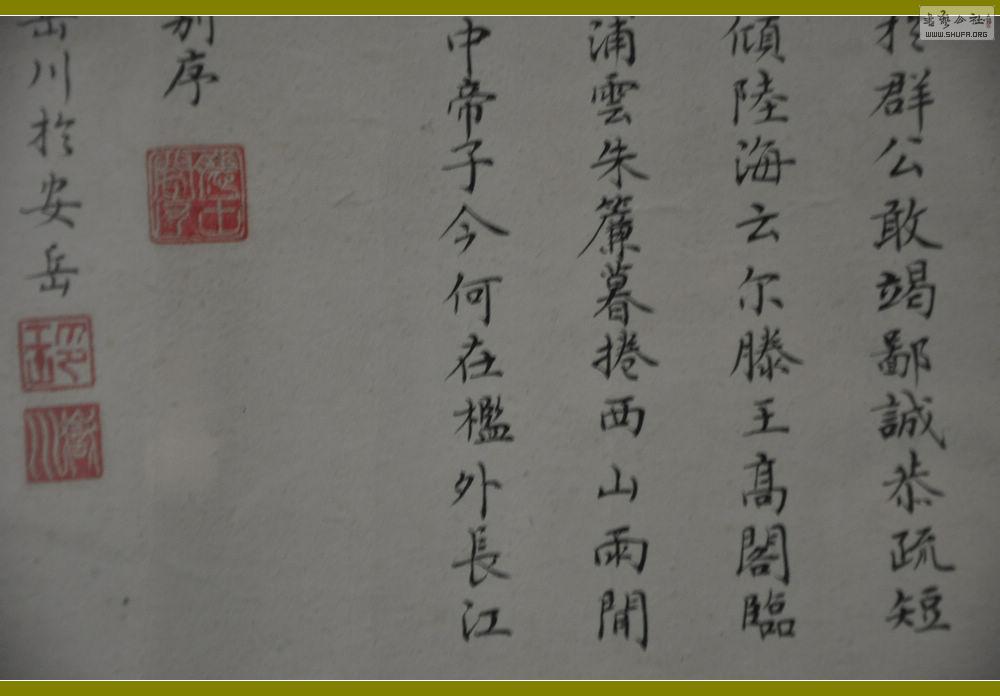 於群公敢竭鄙誠恭疏短
傾陸海云尔滕王高閣臨
浦雲朱簾暮捲西山雨閒
中帝子今何在檻外長江
別序
岳川於安岳
書藝公社
WWW.SHUFA.ORG